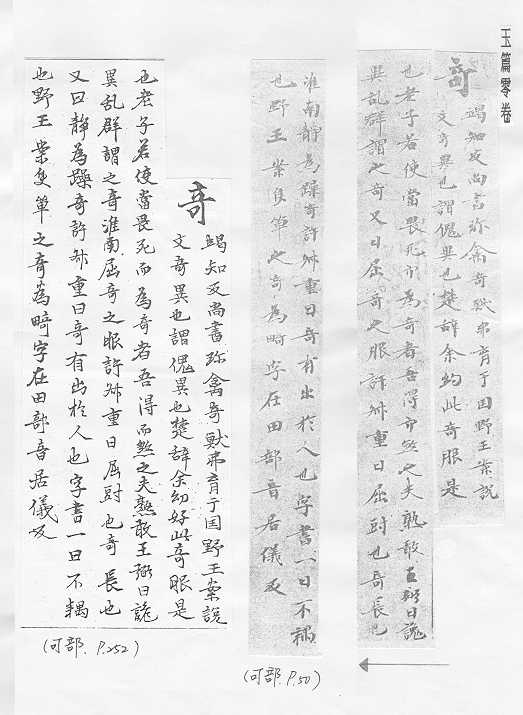 玉篇零卷
奇 竭知反尚書珎禽奇獸弗育于囯野王案說
文奇異也謂傀異也楚辞余幼此奇服是
也老子若使當畏死而為奇者吾得而煞之夫孰敢王弼曰詭
異乱群謂之奇又曰屈奇之服許叔重曰屈尌也奇長也
淮南静為躁奇許叔重曰奇有出於人也字書一曰不耦
也野王案隻單之奇為畸字在田部音居儀反
(可部.P.50)
奇 竭知反尚書珎禽奇獸弗育于国野王案說
文奇異也謂傀異也楚辞余幼好此奇服是
也老子若使當畏死而為奇者吾得而煞之夫孰敢王弼曰詭
異乱群謂之奇淮南屈奇之服許叔重曰屈尌也奇長也
又曰静為躁奇許叔重曰奇有出於人也字書一曰不耦
也野王案隻單之奇為畸字在田部音居儀反
(可部.P.252)